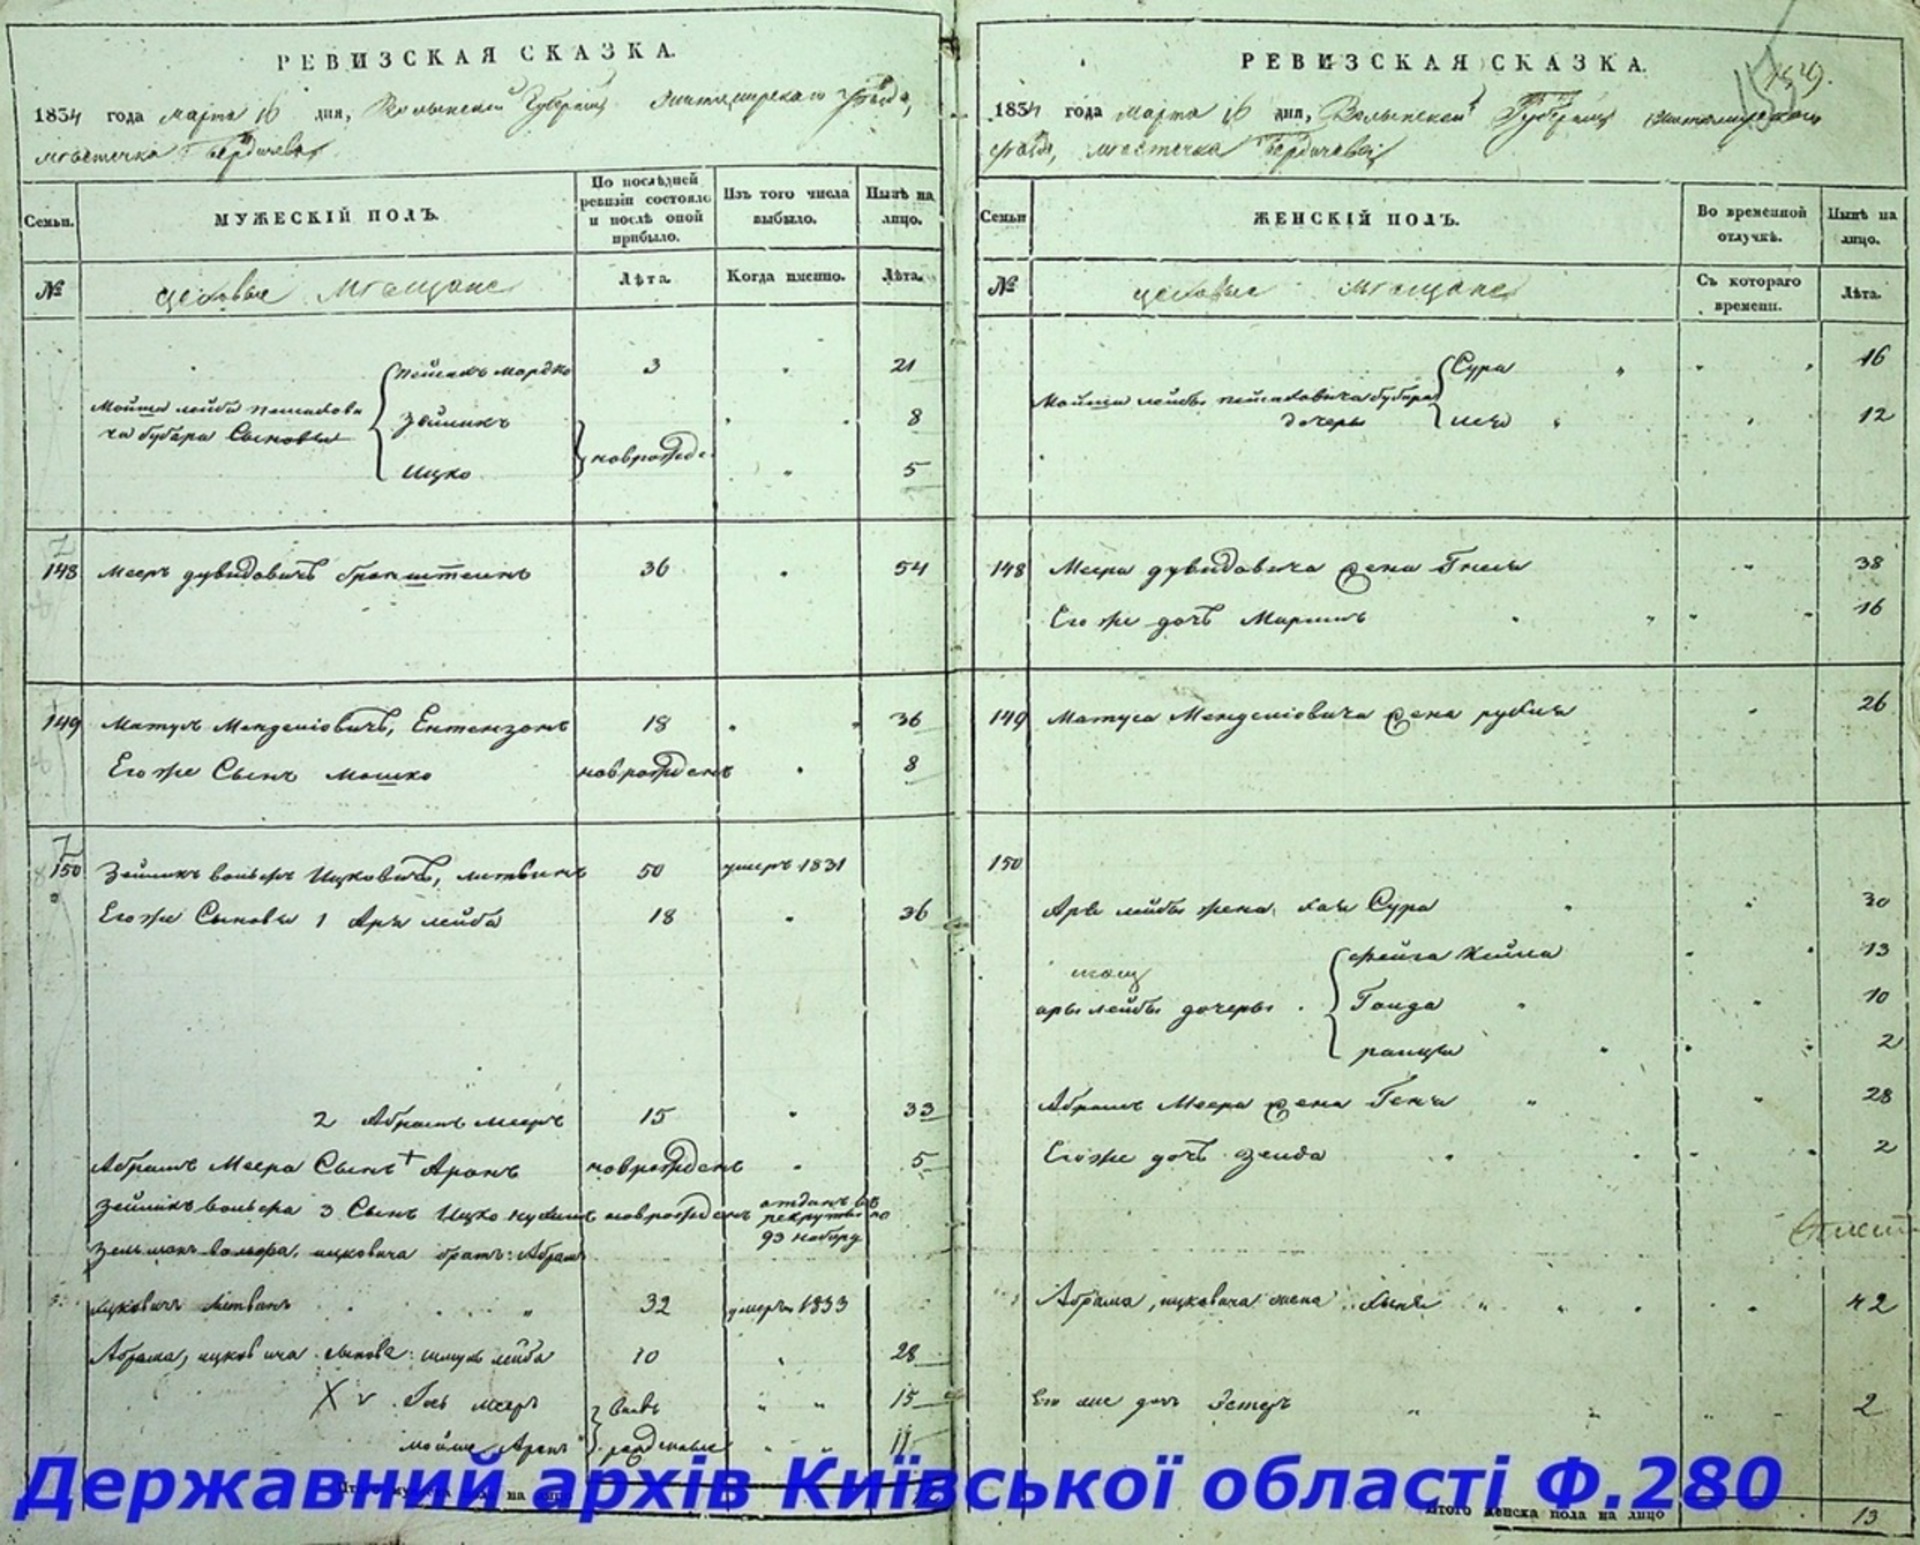 РЕВИЗСКАЯ СКАЗКА.
1834 года марта 16 дня, Волынской Губернии Житомирскаго уѣзда,
мѣстечка Бердичева
Семьи.
МУЖЕСКІЙ ПОЛЪ.
По послѣдней ревизіи состояло и послѣ оной прибыло.
Изъ того числа выбыло.
Нынѣ на лицо.
№
цеховые Мѣщане
Лѣта.
Когда именно.
Лѣта.
Пейсахъ Мордко 3 21
Мойша лейба
Сыновья
Зейликъ 8
Ицко 5
148 Мееръ дувидовичъ бронштеинъ 36 54
149 Матусъ Менделіовичъ, Ентензонъ 18 36
Его же Сынъ Мошко новорожденъ 8
150 Зейликъ вольфъ Ицковичъ, литвинъ 50 умеръ 1831
Его же Сыновья 1 Аръ лейба 18 36
2 Абрамъ мееръ 15 33
Абрамъ Меера Сынъ Аронъ новорожденъ 5
Зейликъ вольфа 3 Сынъ Ицко новорожденъ отданъ въ рекруты по 93 набору
вольфа ицковича братъ: Абрам
ицковичъ Литвакъ 32 умеръ 1833
Абрама, ицковича сынове: шмуль лейба 10 28
мееръ 15
мойше Аронъ 11
на
РЕВИЗСКАЯ СКАЗКА.
1834 года марта 16 дня, Волынской Губерніи Житомирскаго
уѣзда, мѣстечка Бердичева
Семьи
ЖЕНСКІЙ ПОЛЪ.
Во временной отлучкѣ.
Нынѣ на лицо.
№
цеховые мѣщане
Съ котораго времени.
Лѣта.
Сура 16
Мойши лейбы пейсаховича
дочеры
12
148 Меера дувидовича жена Гнися 38
Его же дочь Маріимъ 16
149 Матуса Менделіовича жена рухля 26
150
Аръ лейбы жена хая Сура 30
фейга Хейма 13
ары лейбы дочеры Гольда 10
2
Абрамъ Меера жена Геня 28
Его же дочь Зельда 2
Абрама, ицковича жена 42
Его же дочь Эстеръ 2
Итого женска пола на лицо 13
Державний архів Київської області Ф.280